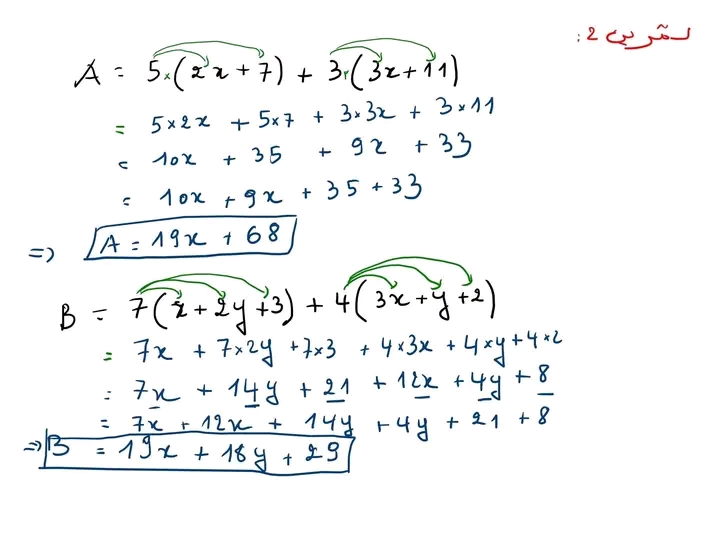 تمرين 2:
A = 5×(2x + 7) + 3×(3x + 11)
= 5×2x + 5×7 + 3×3x + 3×11
= 10x + 35 + 9x + 33
= 10x + 9x + 35 + 33
=> A = 19x + 68
B = 7(x + 2y + 3) + 4(3x + y + 2)
= 7x + 7×2y + 7×3 + 4×3x + 4×y + 4×2
= 7x + 14y + 21 + 12x + 4y + 8
= 7x + 12x + 14y + 4y + 21 + 8
=> B = 19x + 18y + 29